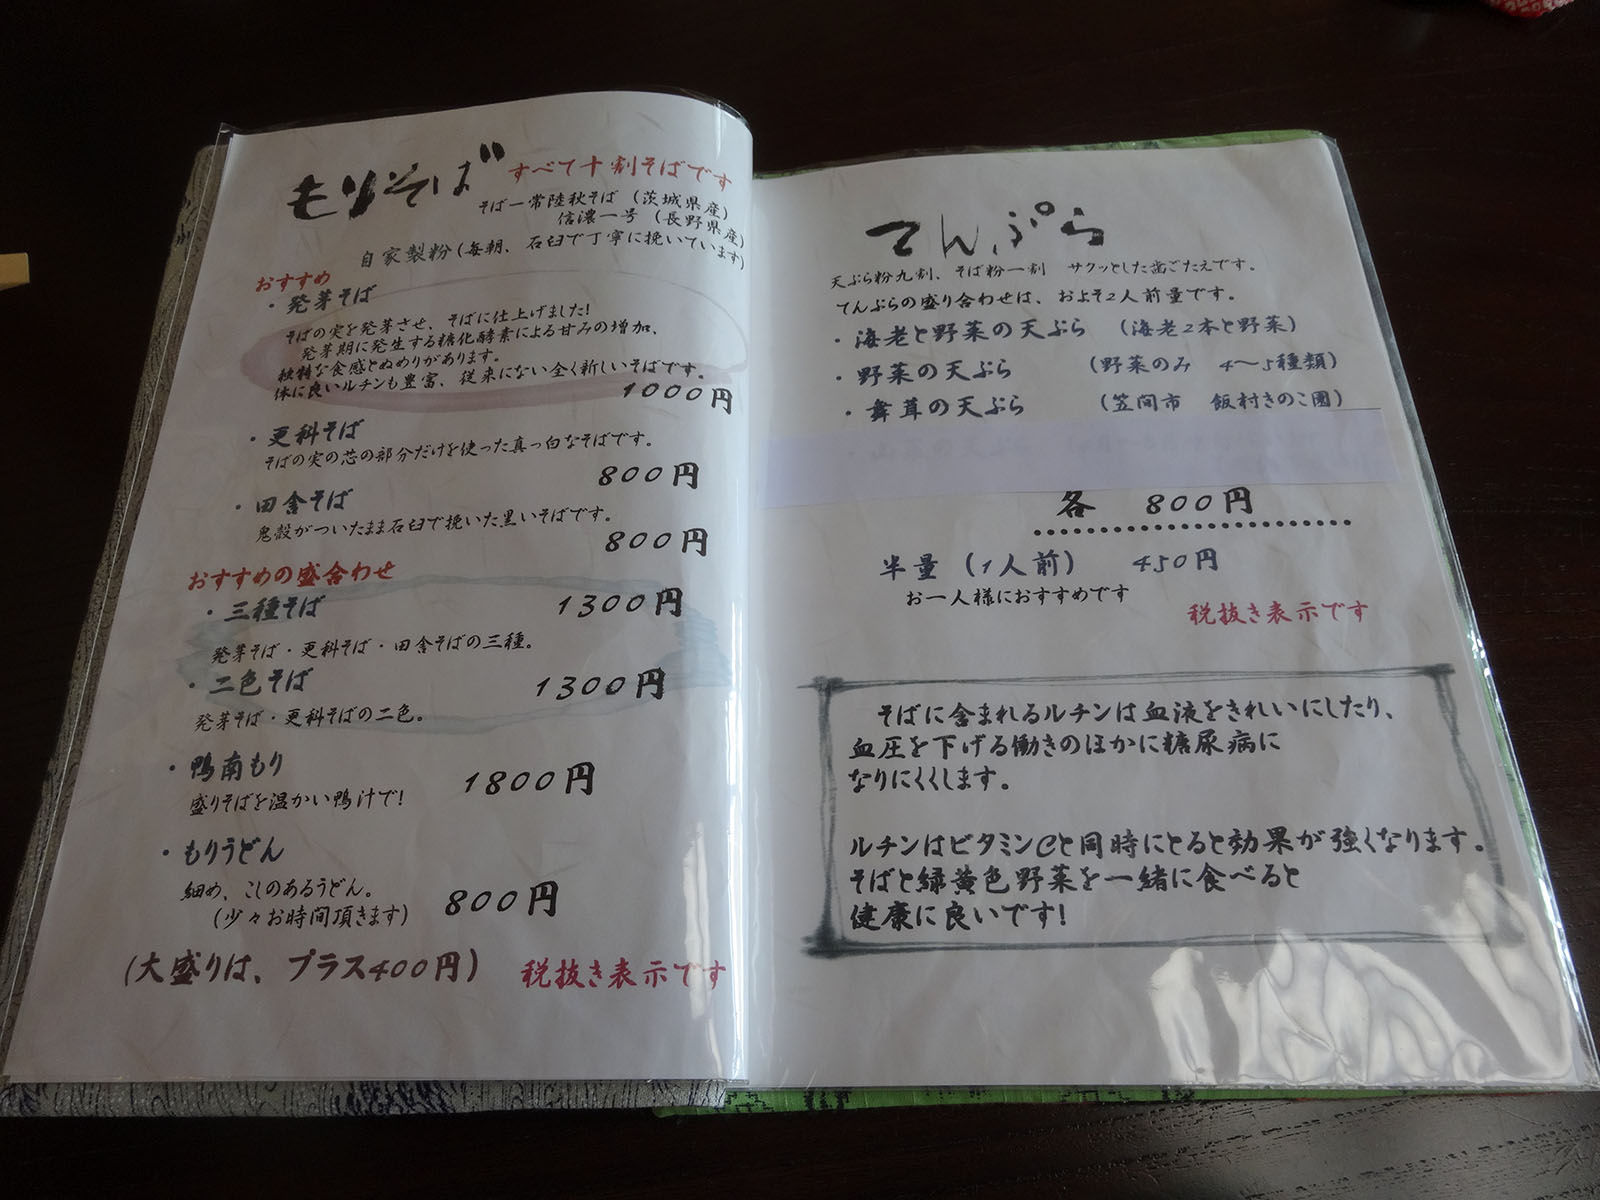 もりそば すべて十割そばです
そばー常陸秋そば (茨城県産)
信濃一号 (長野県産)
自家製粉(毎朝、石臼で丁寧に挽いています)
おすすめ
・発芽そば
そばの実を発芽させ、そばに仕上げました!
発芽期に発生する糖化酵素による甘みの増加、
独特な食感とぬめりがあります。
体に良いルチンも豊富、従来にない全く新しいそばです。
1000円
・更科そば
そばの実の芯の部分だけを使った真っ白なそばです。
800円
・田舎そば
鬼殻がついたまま石臼で挽いた黒いそばです。
800円
おすすめの盛合わせ
・三種そば 1300円
発芽そば・更科そば・田舎そばの三種。
・二色そば 1300円
発芽そば・更科そばの二色。
・鴨南もり 1800円
盛りそばを温かい鴨汁で!
・もりうどん
細め、こしのあるうどん。 800円
(少々お時間頂きます)
(大盛りは、プラス400円) 税抜き表示です
てんぷら
天ぷら粉九割、そば粉一割 サクッとした歯ごたえです。
てんぷらの盛り合わせは、およそ2人前量です。
・海老と野菜の天ぷら (海老2本と野菜)
・野菜の天ぷら (野菜のみ 4〜5種類)
・舞茸の天ぷら (笠間市 飯村きのこ園)
各 800円
半量 (1人前) 450円
お一人様におすすめです
税抜き表示です
そばに含まれるルチンは血液をきれいにしたり、
血圧を下げる働きのほかに糖尿病に
なりにくくします。
ルチンはビタミンCと同時にとると効果が強くなります。
そばと緑黄色野菜を一緒に食べると
健康に良いです!